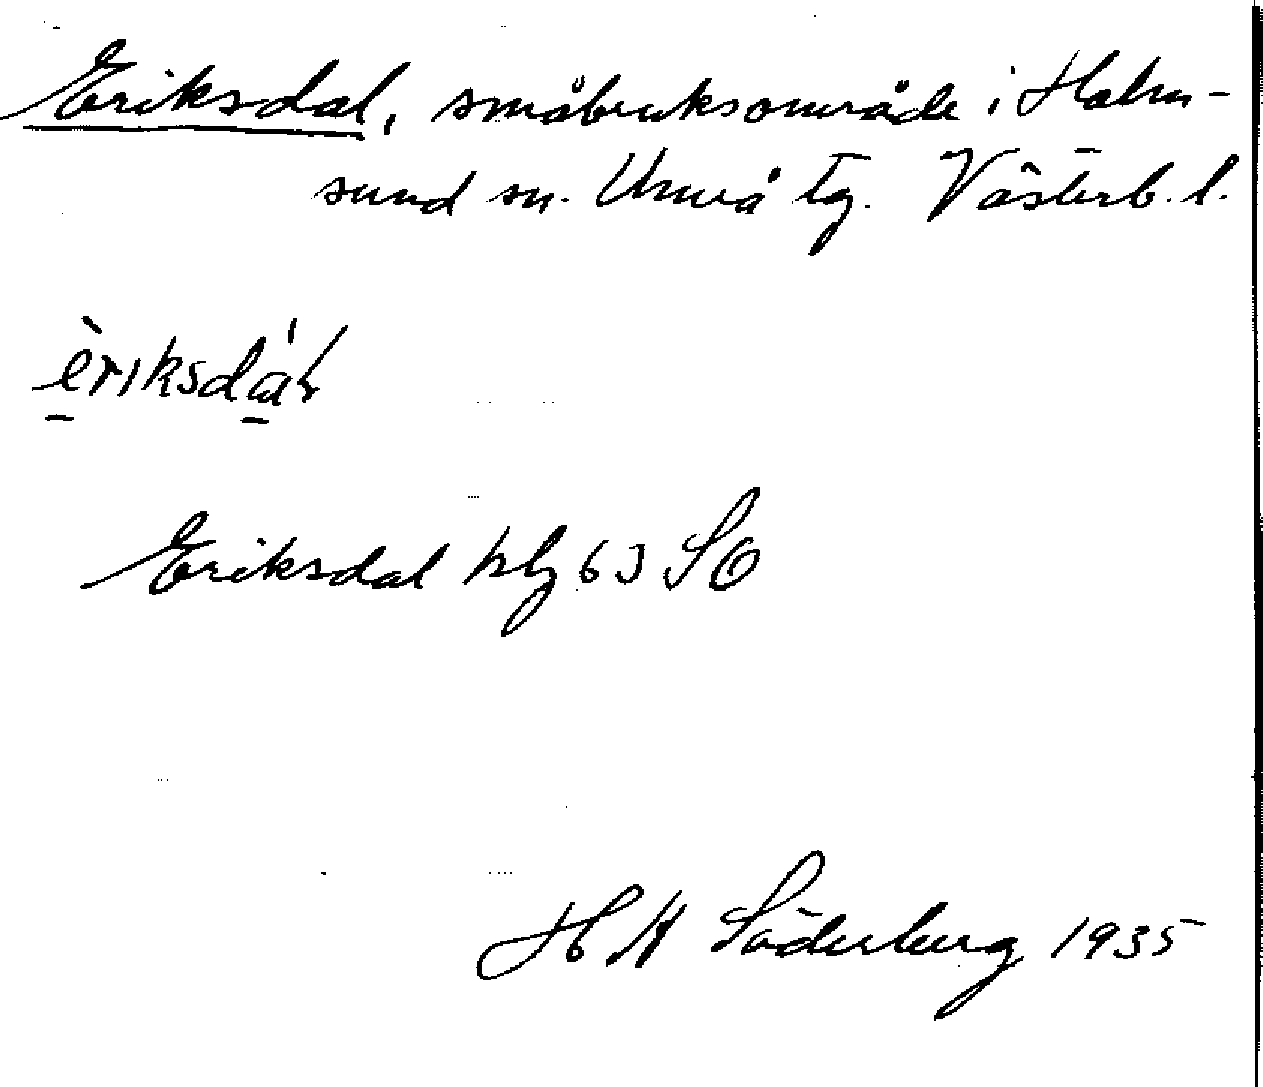 Eriksdal, småbruksområde i Holm-
sund sn. Umeå tg. Västerb. l.
Eriksdal blg 63 SO
H W Söderberg 1935